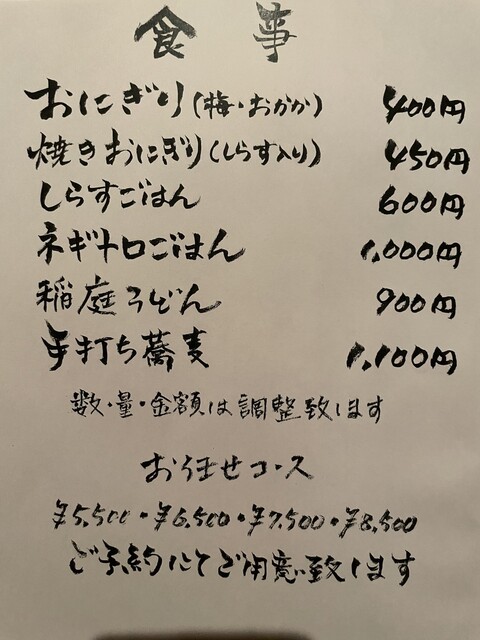 食事
おにぎり(梅・おかか) 400円
焼きおにぎり(しらす入り) 450円
しらすごはん 600円
ネギトロごはん 1,000円
稲庭うどん 900円
手打ち蕎麦 1,100円
数・量・金額は調整致します
お任せコース
¥5,500・¥6,500・¥7,500・¥8,500
ご予約にてご用意致します